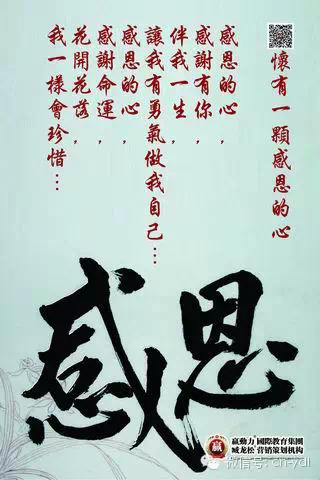 懷有一顆感恩的心
感恩的心，
感謝有你，
伴我一生，
讓我有勇氣做我自己…
感恩的心，
感謝命運，
花開花落，
我一樣會珍惜…
感恩
贏動力 國際教育集團
臧龙松 营销策划机构
微信号: cn-ydl